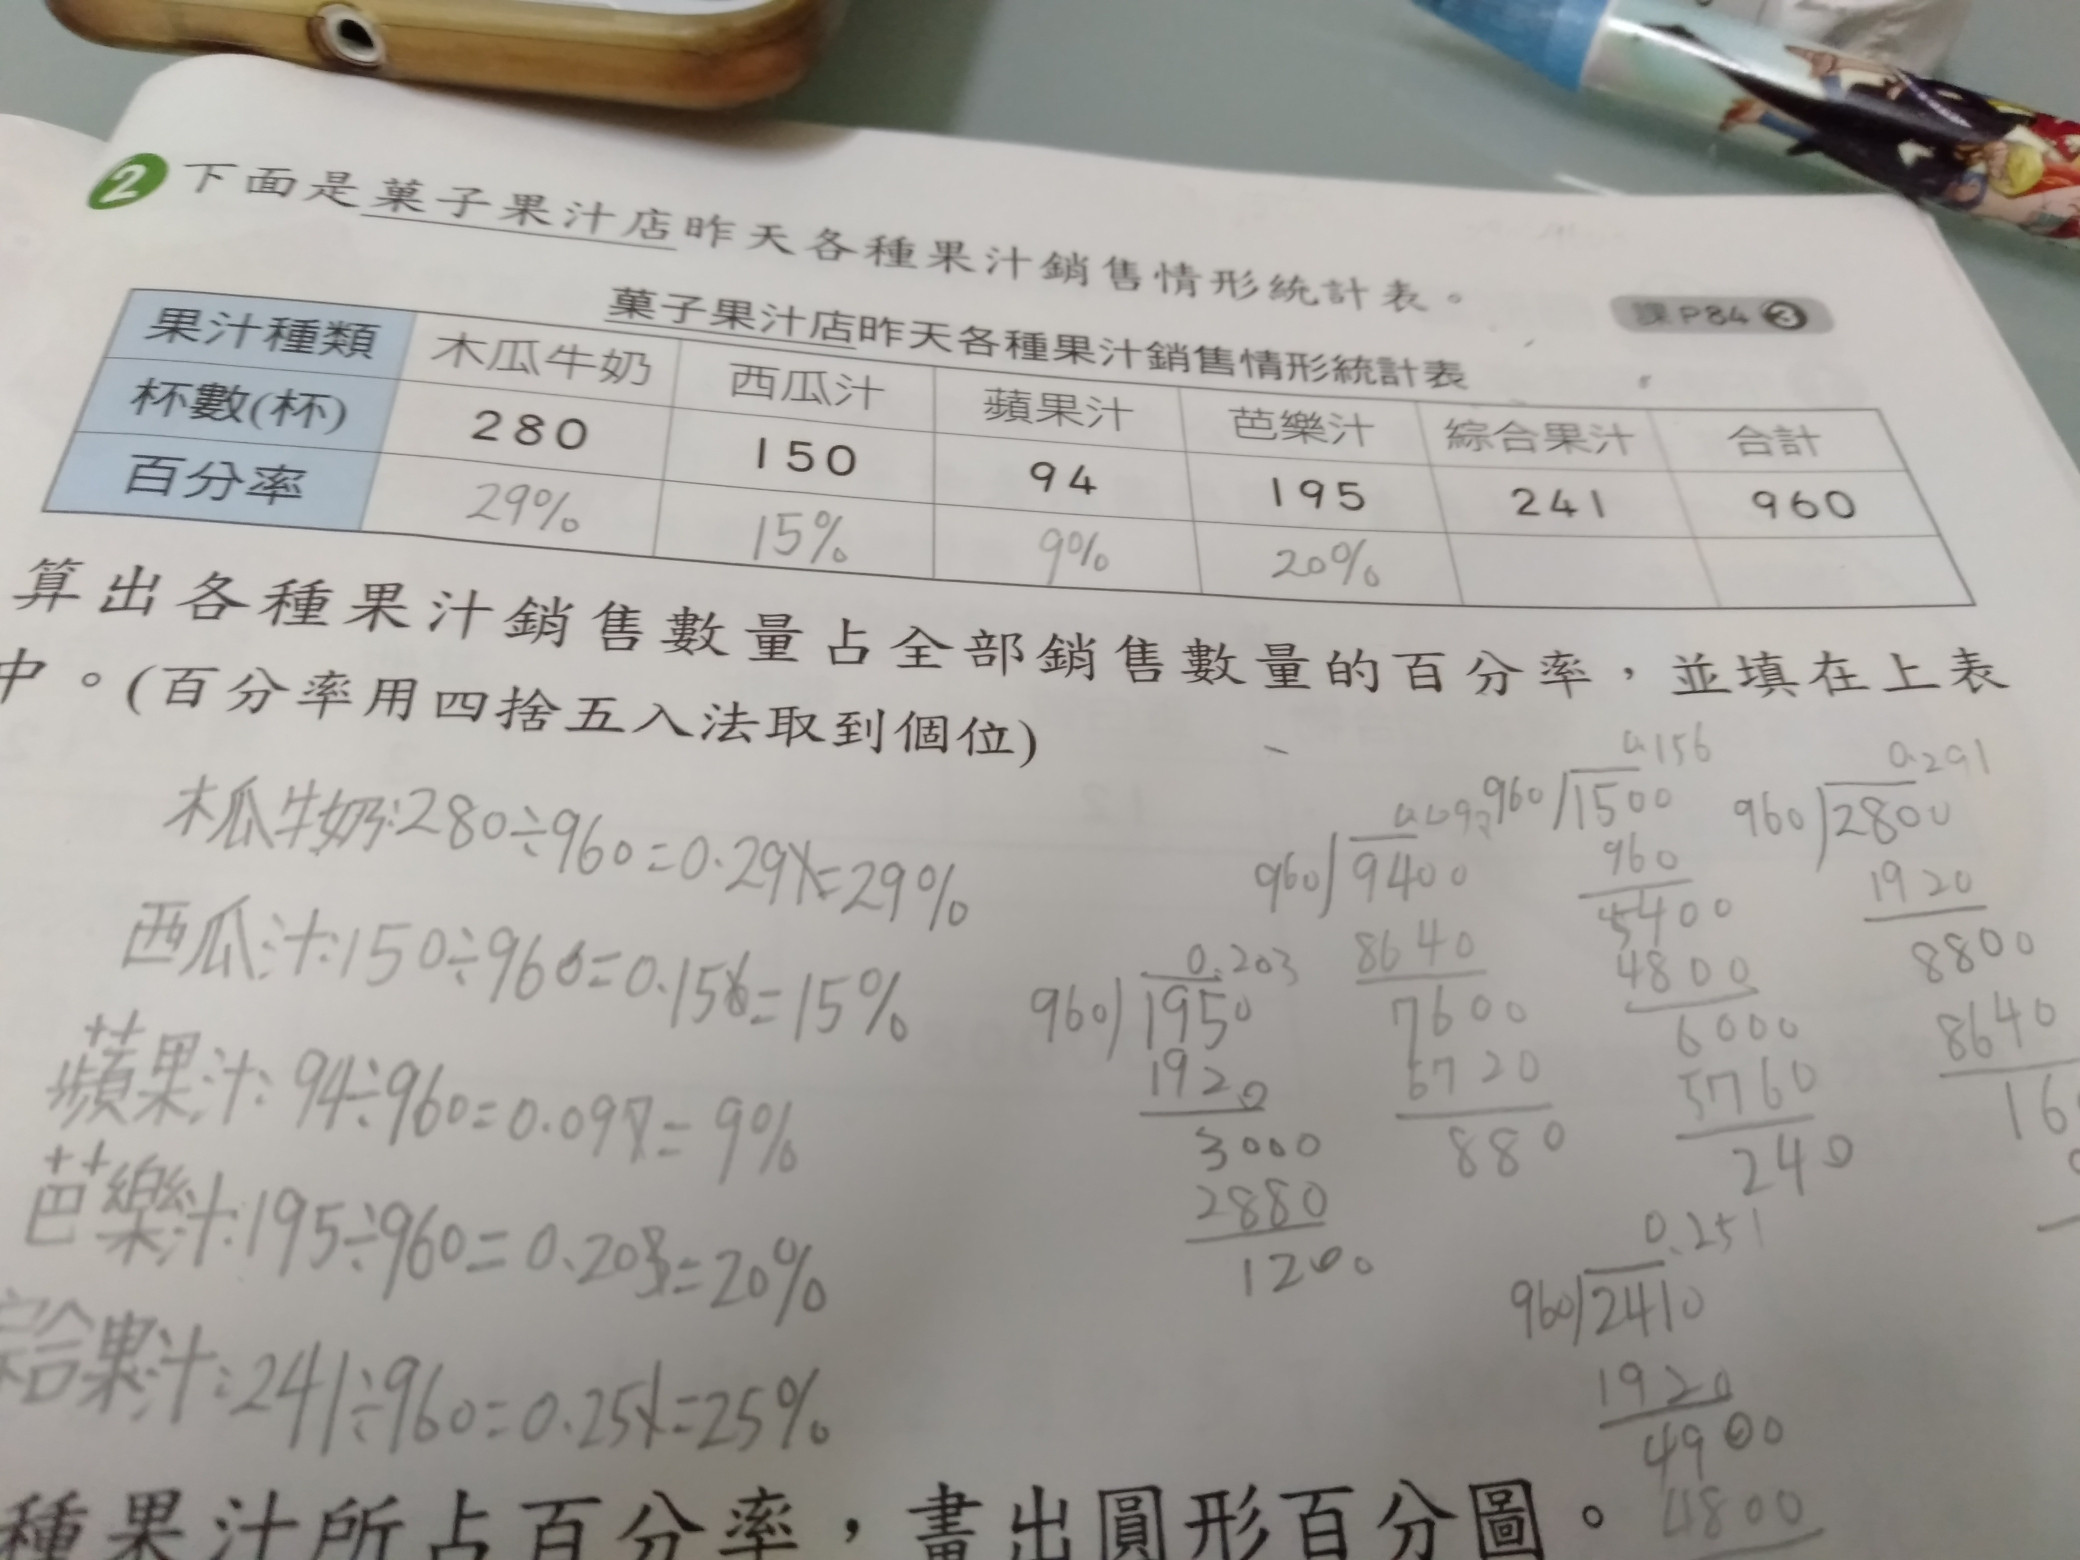 2 下面是菓子果汁店昨天各種果汁銷售情形統計表。
課P84 3
菓子果汁店昨天各種果汁銷售情形統計表
果汁種類 木瓜牛奶 西瓜汁 蘋果汁 芭樂汁 綜合果汁 合計
杯數(杯) 280 150 94 195 241 960
百分率 29% 15% 9% 20%
算出各種果汁銷售數量占全部銷售數量的百分率，並填在上表
中。(百分率用四捨五入法取到個位)
木瓜牛奶:280÷960=0.291=29%
西瓜汁:150÷960=0.156=15%
蘋果汁:94÷960=0.097=9%
芭樂汁:195÷960=0.203=20%
綜合果汁:241÷960=0.251=25%
0.203
960)1950
1920
3000
2880
1200
960)9400
8640
7600
6720
880
0.156
960)1500
960
5400
4800
6000
5760
240
0.291
960)2800
1920
8800
8640
16
0.251
960)2410
1920
4900
4800
種果汁所占百分率，畫出圓形百分圖。